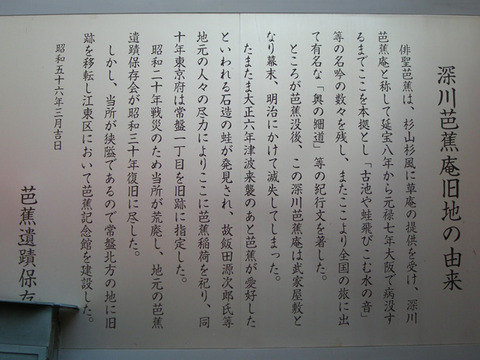 深川芭蕉庵旧地の由来
俳聖芭蕉は、杉山杉風に草庵の提供を受け、深川
芭蕉庵と称して延宝八年から元禄七年大阪で病没す
るまでここを本拠とし「古池や蛙飛びこむ水の音」
等の名吟の数々を残し、またここより全国の旅に出
て有名な「奥の細道」等の紀行文を著した。
ところが芭蕉没後、この深川芭蕉庵は武家屋敷と
なり幕末、明治にかけて滅失してしまった。
たまたま大正六年津波来襲のあと芭蕉が愛好した
といわれる石造の蛙が発見され、故飯田源次郎氏等
地元の人々の尽力によりここに芭蕉稲荷を祀り、同
十年東京府は常盤一丁目を旧跡に指定した。
昭和二十年戦災のため当所が荒廃し、地元の芭蕉
遺蹟保存会が昭和三十年復旧に尽した。
しかし、当所が狭隘であるので常盤北方の地に旧
跡を移転し江東区において芭蕉記念館を建設した。
昭和五十六年三月吉日
芭蕉遺蹟保存